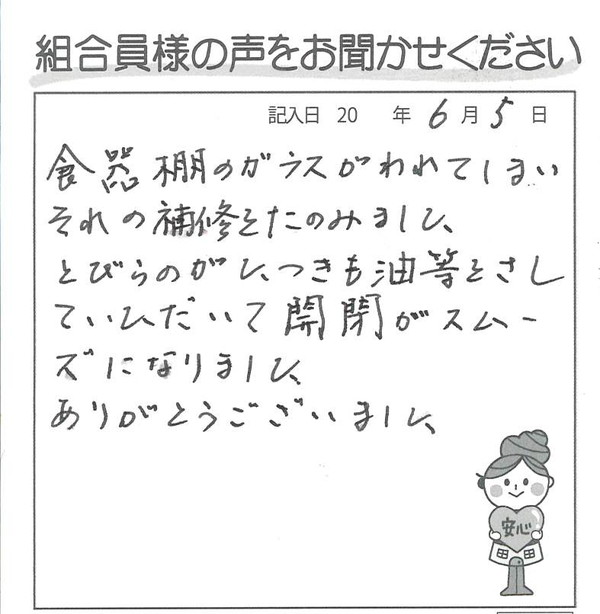 組合員様の声をお聞かせください
記入日 20 年 6 月 5 日
食器棚のガラスがわれてしまい
それの補修をたのみました
とびらのがたつきも油等をさし
ていただいて開閉がスムー
ズになりました
ありがとうございました
安心